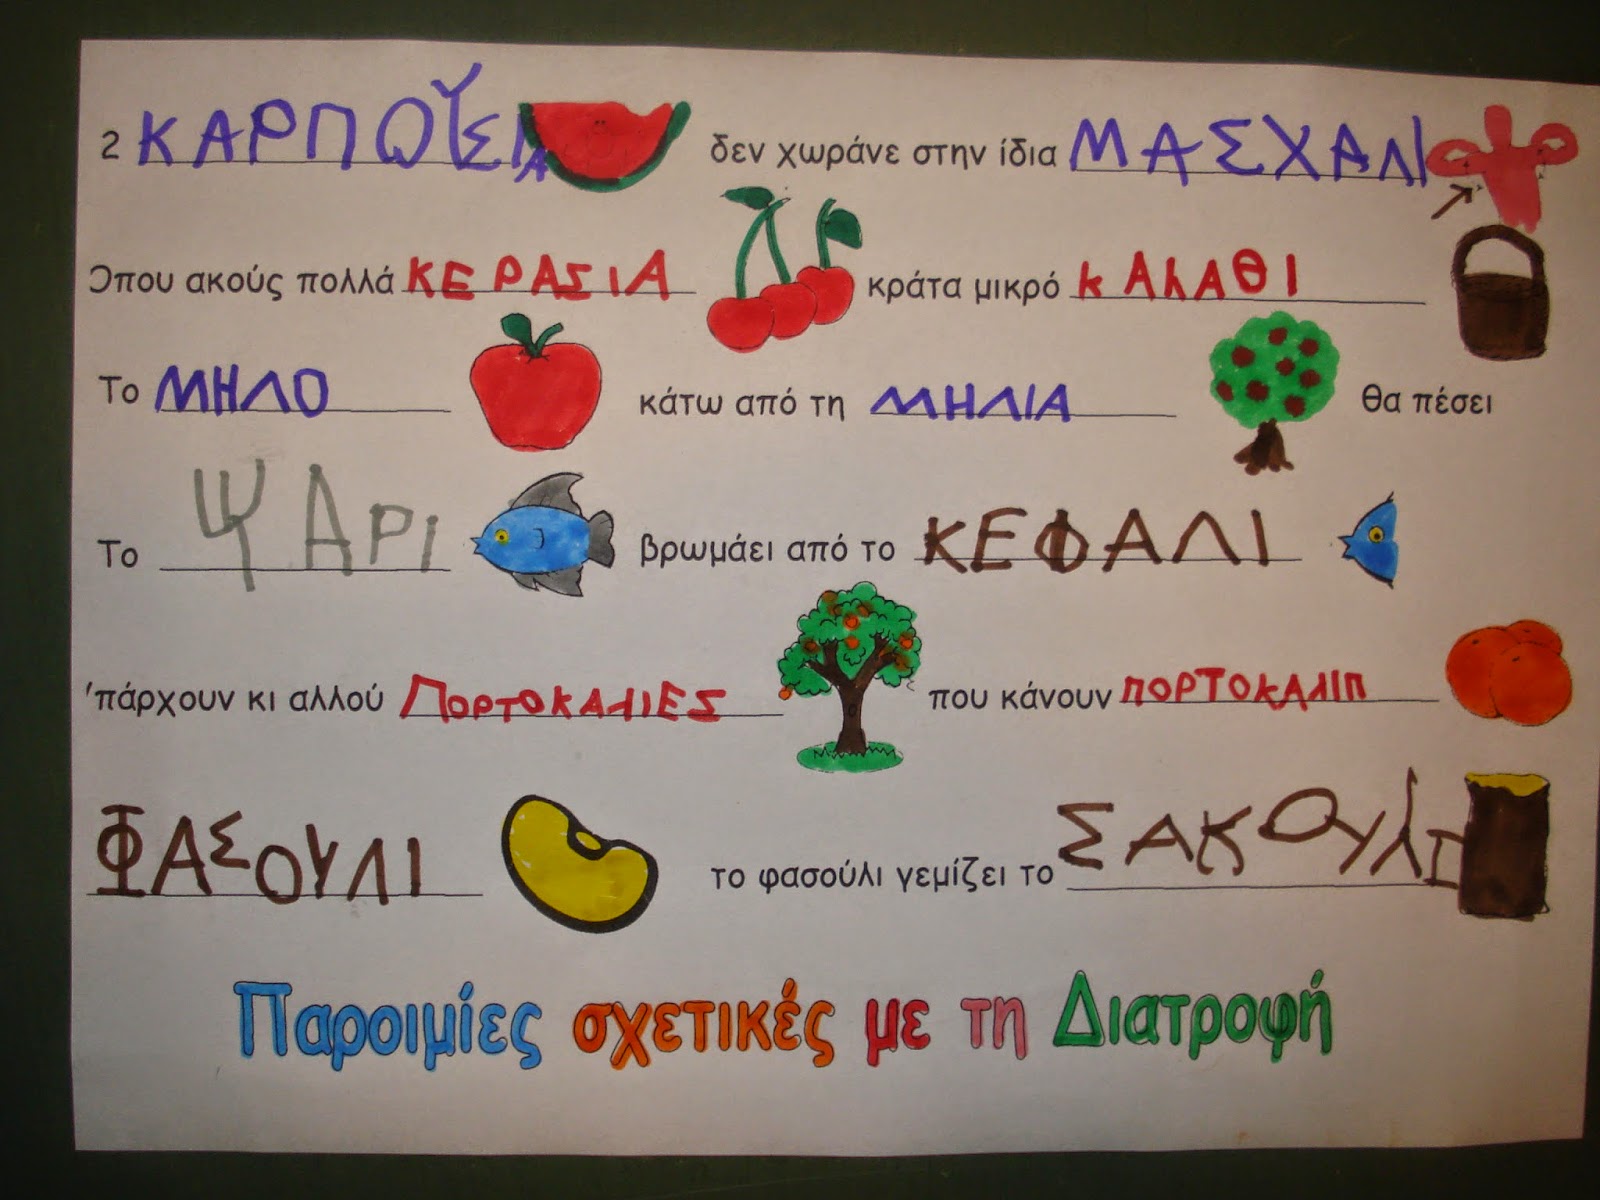 2 ΚΑΡΠΟΥΣΙΑ δεν χωράνε στην ίδια ΜΑΣΧΑΛΙ
Όπου ακούς πολλά ΚΕΡΑΣΙΑ κράτα μικρό ΚΑΛΑΘΙ
Το ΜΗΛΟ κάτω από τη ΜΗΛΙΑ θα πέσει
Το ΨΑΡΙ βρωμάει από το ΚΕΦΑΛΙ
'πάρχουν κι αλλού ΠΟΡΤΟΚΑΛΙΕΣ που κάνουν ΠΟΡΤΟΚΑΛΙΠ
ΦΑΣΟΥΛΙ το φασούλι γεμίζει το ΣΑΚΟΥΛΙ
Παροιμίες σχετικές με τη Διατροφή